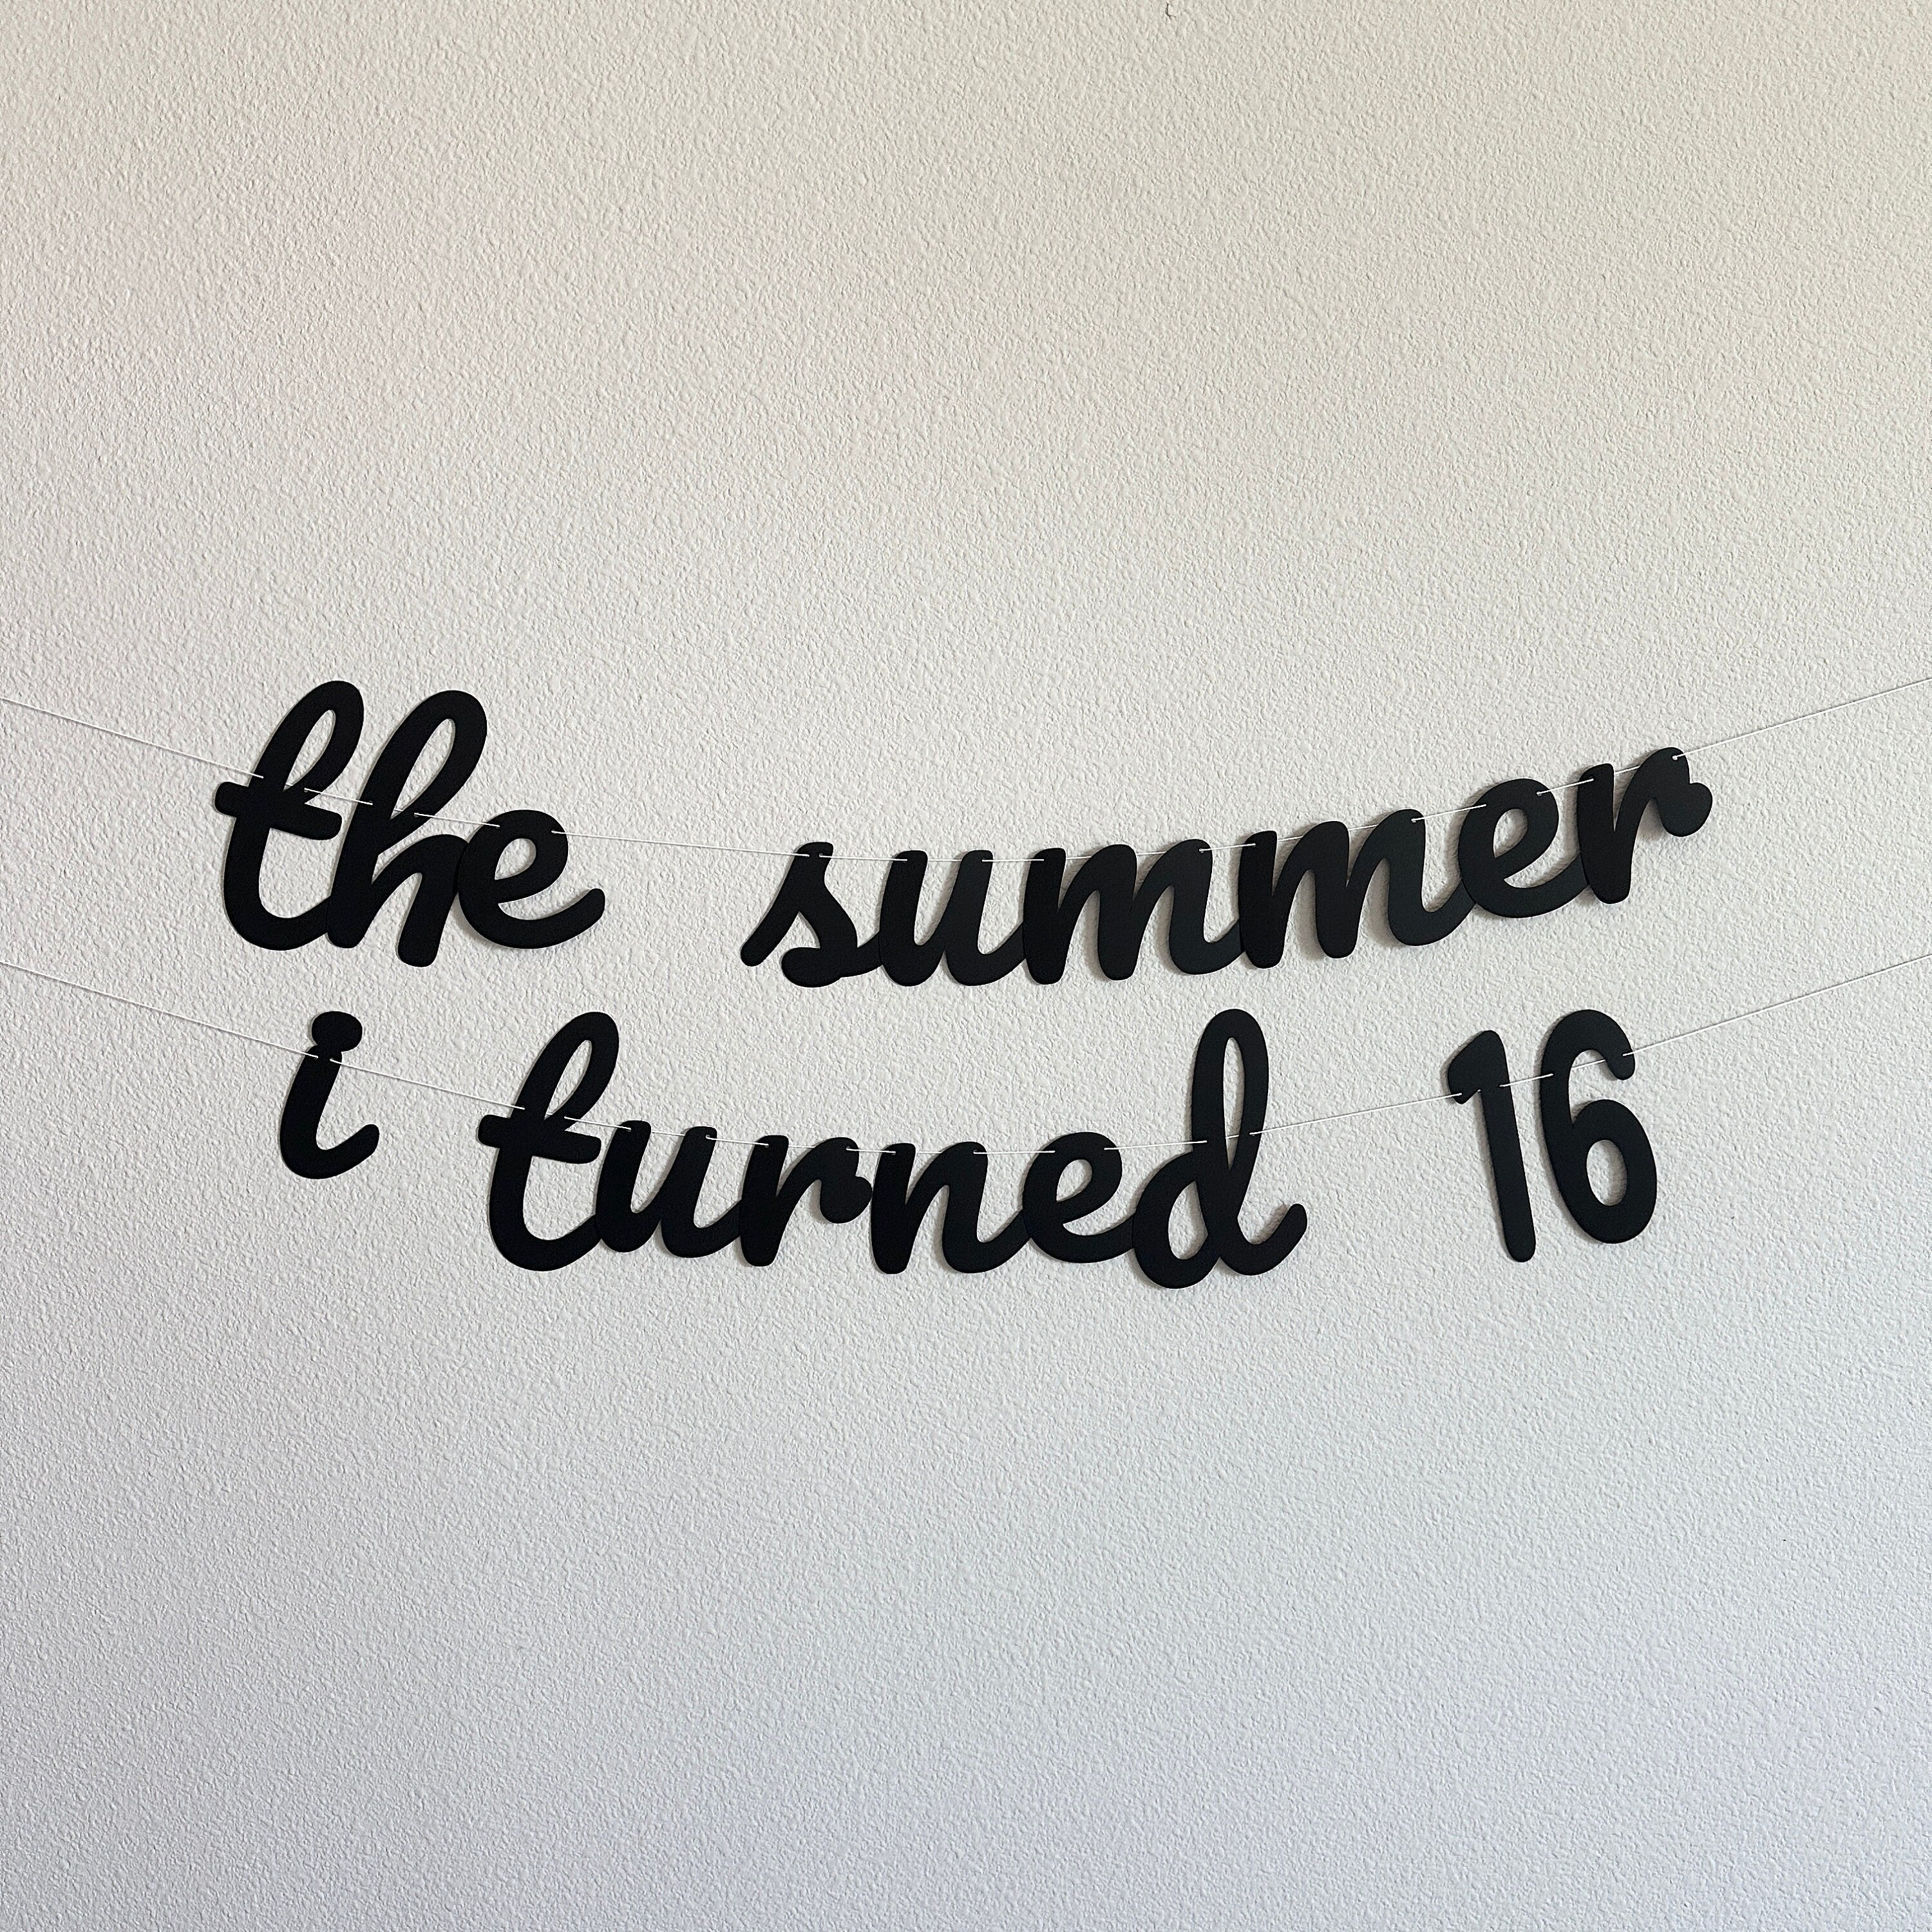 the summer
i turned 16